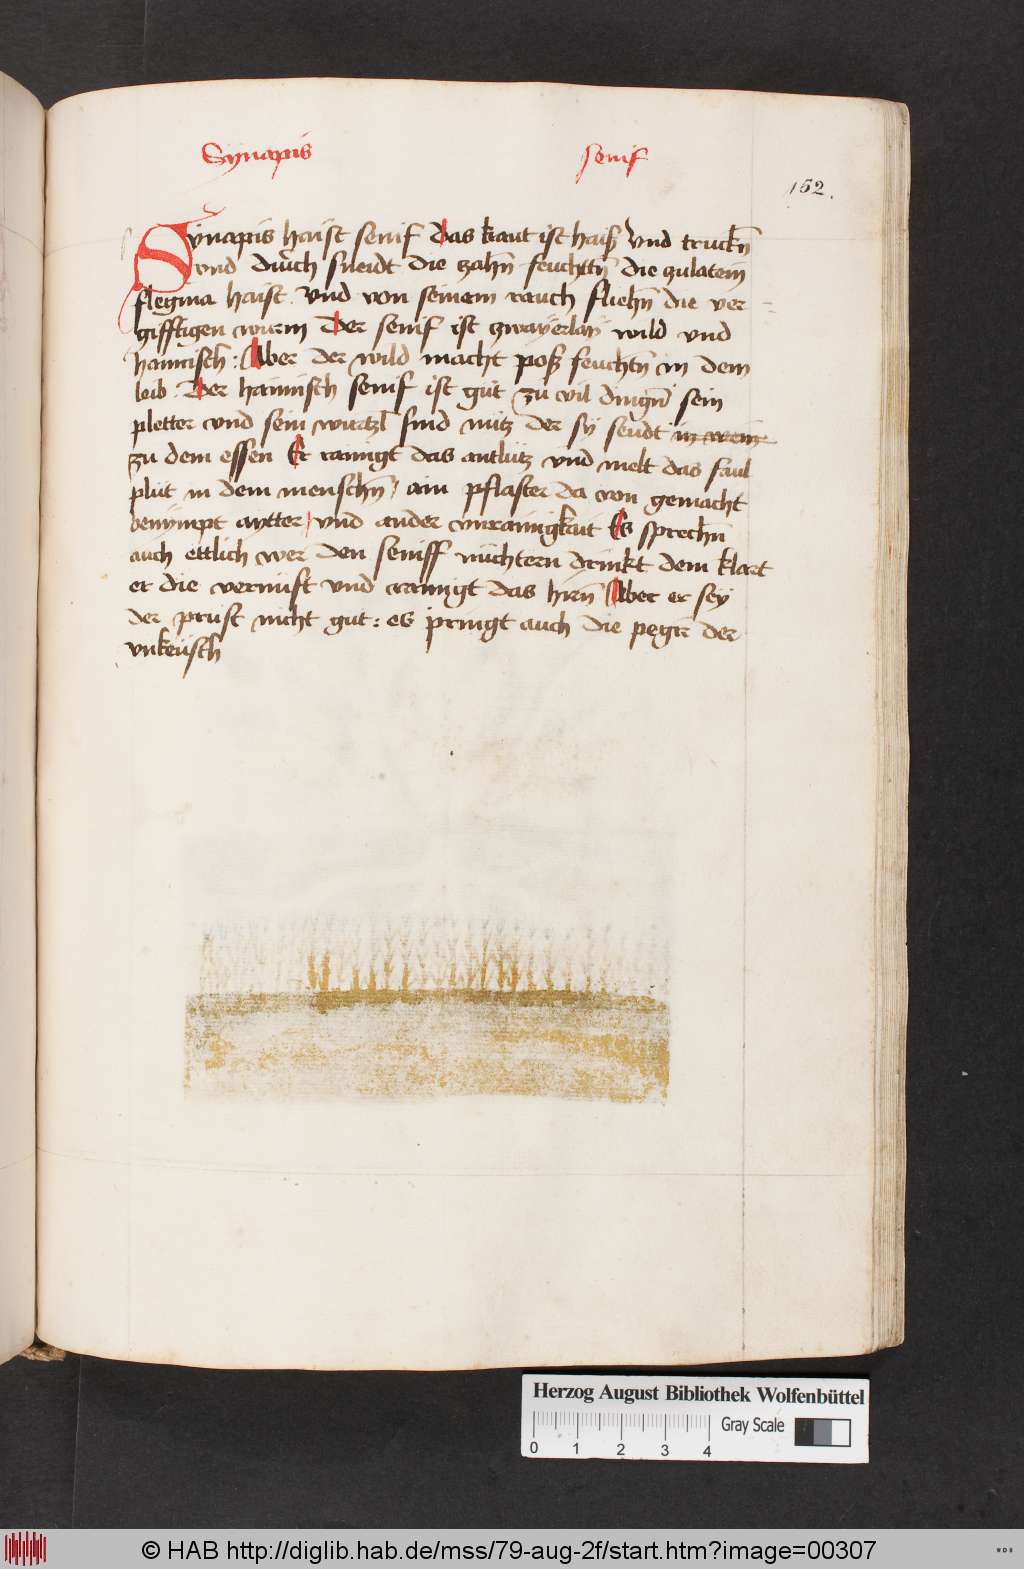 Synapis senif
152.
Synapis haist senif das kraut ist haiß vnd truckn̄
vnd durch sneidt die zähn feuchttn̄ die zulatein
flegma haist vnd von seinem rauch fliehn̄ die ver-
gifftigen wurm Der senif ist zwayerlay wild vnd
haimisch: Aber der wild macht poß feuchtn̄ in dem
leib. Der haimisch senif ist gut zu vil dingn̄ sein
pletter vnd sein wurtzl sind nutz der sy seudt in wein
zu dem essen Er rainigt das antlutz vnd melt das faul
plut in dem menschn̄ / ain pflaster da von gemacht
benympt aytter / vnd ander vnrainigkait Es sprechn̄
auch ettlich wer den seniff nuchtern drinkt dem klart
er die vernuft vnd rainigt das hirn̄ Aber er sey
der prust nicht gut: es pringt auch die pegir der
vnkeüsch
Herzog August Bibliothek Wolfenbüttel
0 1 2 3 4 Gray Scale
© HAB http://diglib.hab.de/mss/79-aug-2f/start.htm?image=00307